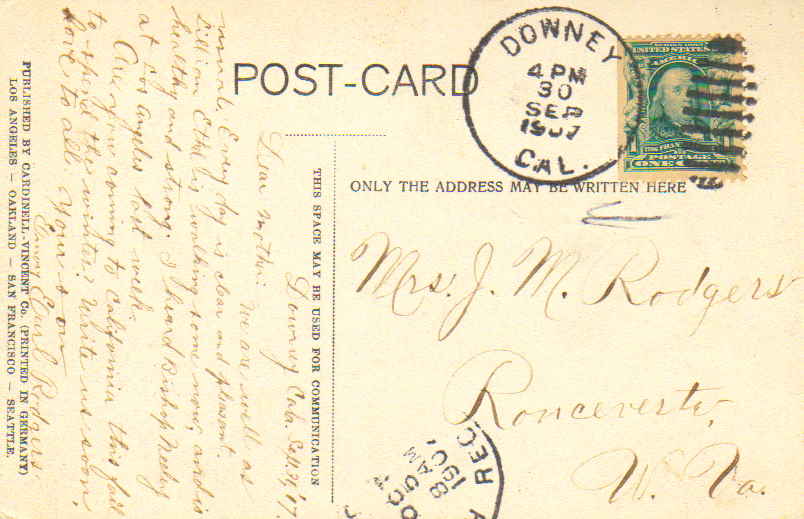 POST-CARD
DOWNEY
4 PM
30
SEP
1907
CAL.
UNITED STATES OF AMERICA
POSTAGE
ONE CENT
ONLY THE ADDRESS MAY BE WRITTEN HERE
Mrs. J. M. Rodgers
Ronceverte,
W. Va.
REC'D
8 AM
190
THIS SPACE MAY BE USED FOR COMMUNICATION
Downey Cal. Sept. '07.
Dear mother: We are well as
usual. Every day is clear and pleasant.
Lillian Ethel is walking some now, and is
healthy and strong. I heard Bishop Neely
at Los Angeles last week.
Are you coming to California this fall
to spend the winter? Write us soon,
Love to all. Your son
Earl Rodgers
PUBLISHED BY CARDINELL-VINCENT CO. (PRINTED IN GERMANY)
LOS ANGELES — OAKLAND — SAN FRANCISCO — SEATTLE.